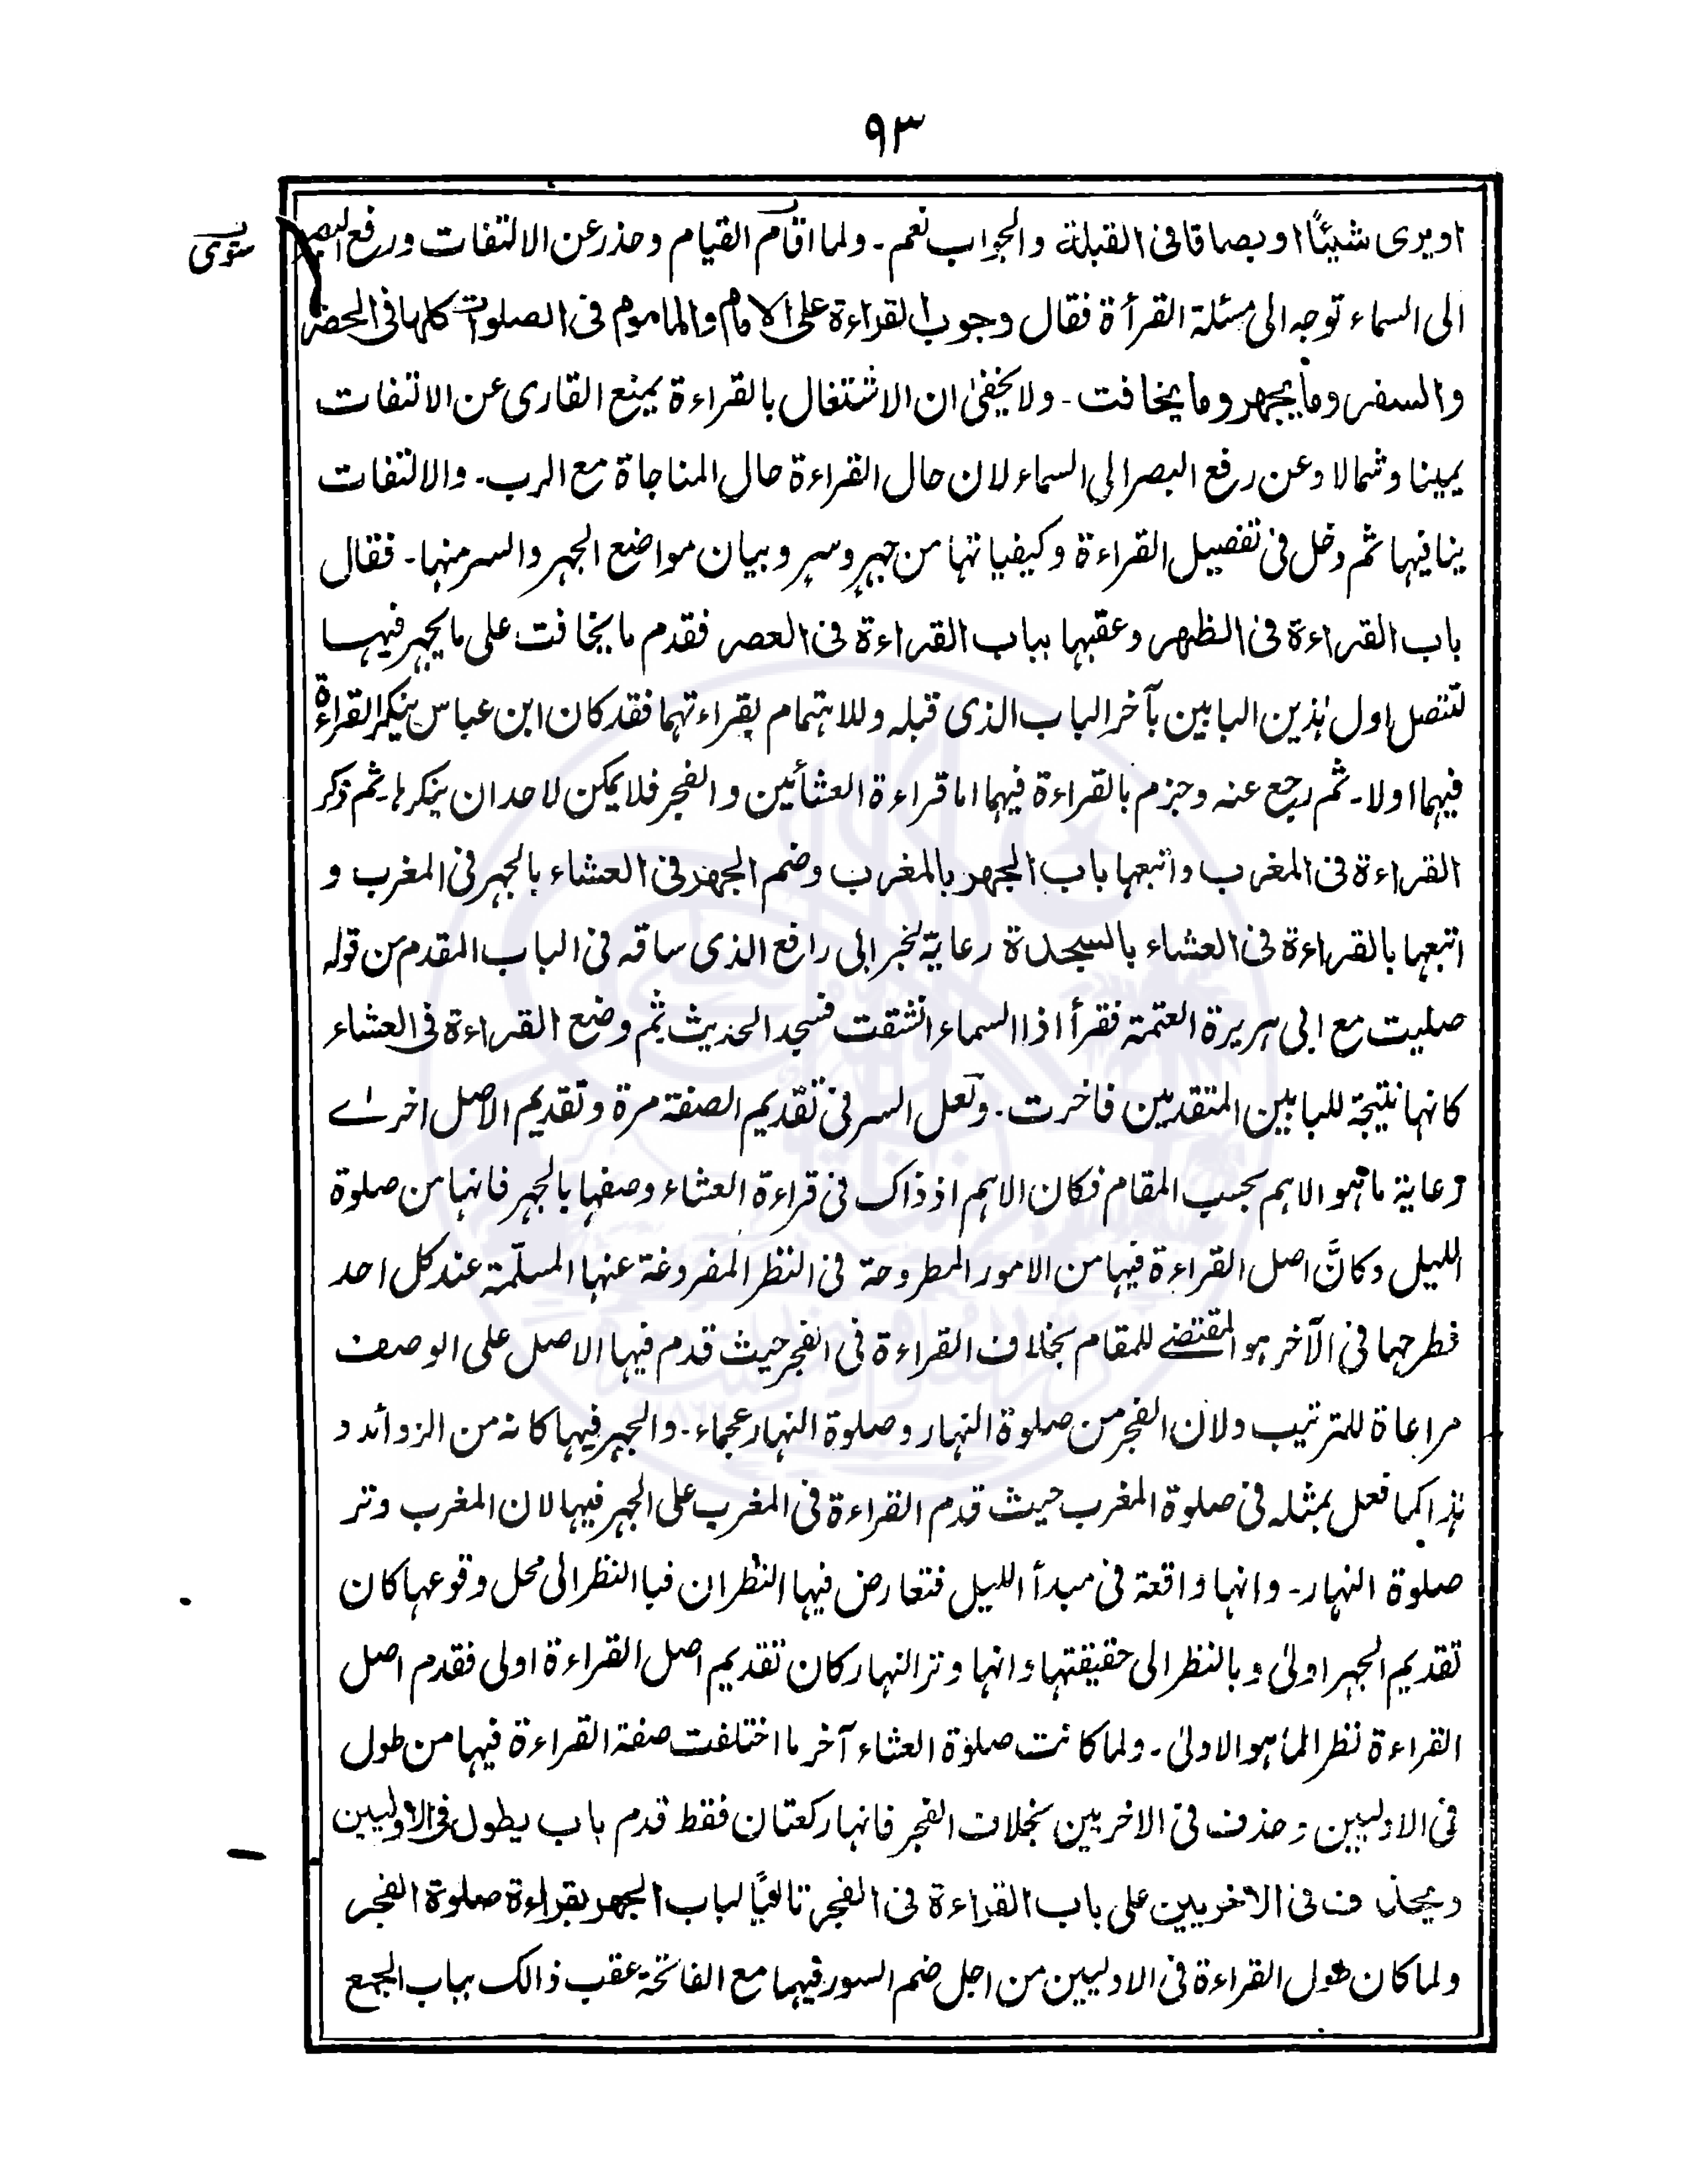 ٩٣
او یری شیئًا او بصاقا فی القبلة والجواب نعم۔ ولما اقام القیام وحذر عن الالتفات ورفع البصر
سوّی
الی السماء توجہ الی مسئلة القرأة فقال وجوب القراءة علی الامام والماموم فی الصلوات کلہا فی الحضر
والسفر وما یجہر وما یخافت۔ ولا یخفیٰ ان الاشتغال بالقراءة یمنع القاری عن الالتفات
یمینا وشمالا وعن رفع البصر الی السماء لان حال القراءة حال المناجاة مع الرب۔ والالتفات
ینافیہا ثم دخل فی تفصیل القراءة وکیفیاتہا من جہرٍ وسرٍ وبیان مواضع الجہر والسر منہا۔ فقال
باب القراءة فی الظہر وعقبہا بباب القراءة فی العصر فقدم ما یخافت علی ما یجہر فیہا
لتتصل اول ہٰذین البابین بآخر الباب الذی قبلہ وللاہتمام بقراءتہما فقد کان ابن عباس ینکر القراءة
فیہما اولا۔ ثم رجع عنہ وجزم بالقراءة فیہما اما قراءة العشائین والفجر فلا یمکن لاحد ان ینکرہا۔ ثم ذکر
القراءة فی المغرب واتبعہا باب الجہر بالمغرب وضم الجہر فی العشاء بالجہر فی المغرب و
اتبعہا بالقراءة فی العشاء بالسجدة رعایة لخبر ابی رافع الذی ساقہ فی الباب المقدم من قولہ
صلیت مع ابی ہریرة العتمة فقرأ اذا السماء انشقت فسجد الحدیث ثم وضع القراءة فی العشاء
کانہا نتیجة للبابین المتقدمین فاخرت۔ ولعل السر فی تقدیم الصفة مرة وتقدیم الاصل اخرےٰ
رعایة ما ہو الاہم بحسب المقام فکان الاہم اذ ذاک فی قراءة العشاء وصفہا بالجہر فانہا من صلوة
اللیل وکانَّ اصل القراءة فیہا من الامور المطروحة فی النظر المفروغة عنہا المسلّمة عند کل احد
فطرحہا فی الآخر ہو المقتضے للمقام بخلاف القراءة فی الفجر حیث قدم فیہا الاصل علی الوصف
مراعاة للترتیب ولان الفجر من صلوة النہار وصلوة النہار عجماء۔ والجہر فیہا کانہ من الزوائد و
ہذا کما فعل بمثلہ فی صلوة المغرب حیث قدم القراءة فی المغرب علی الجہر فیہا لان المغرب وتر
صلوة النہار۔ وانہا واقعة فی مبدأ اللیل فتعارض فیہا النظران فبا النظر الی محل وقوعہا کان
تقدیم الجہر اولیٰ وبالنظر الی حقیقتہا وانہا وتر النہار کان تقدیم اصل القراءة اولی فقدم اصل
القراءة نظرا لما ہو الاولیٰ۔ ولما کانت صلوة العشاء آخر ما اختلفت صفة القراءة فیہا من طول
فی الاولیین وحذف فی الاخریین بخلاف الفجر فانہا رکعتان فقط قدم باب یطول فی الاولیین
ویحذف فی الاخریین علی باب القراءة فی الفجر تالفیًا لباب الجہر بقراءة صلوة الفجر
ولما کان طول القراءة فی الاولیین من اجل ضم السور فیہما مع الفاتحة عقب ذالک بباب الجمع